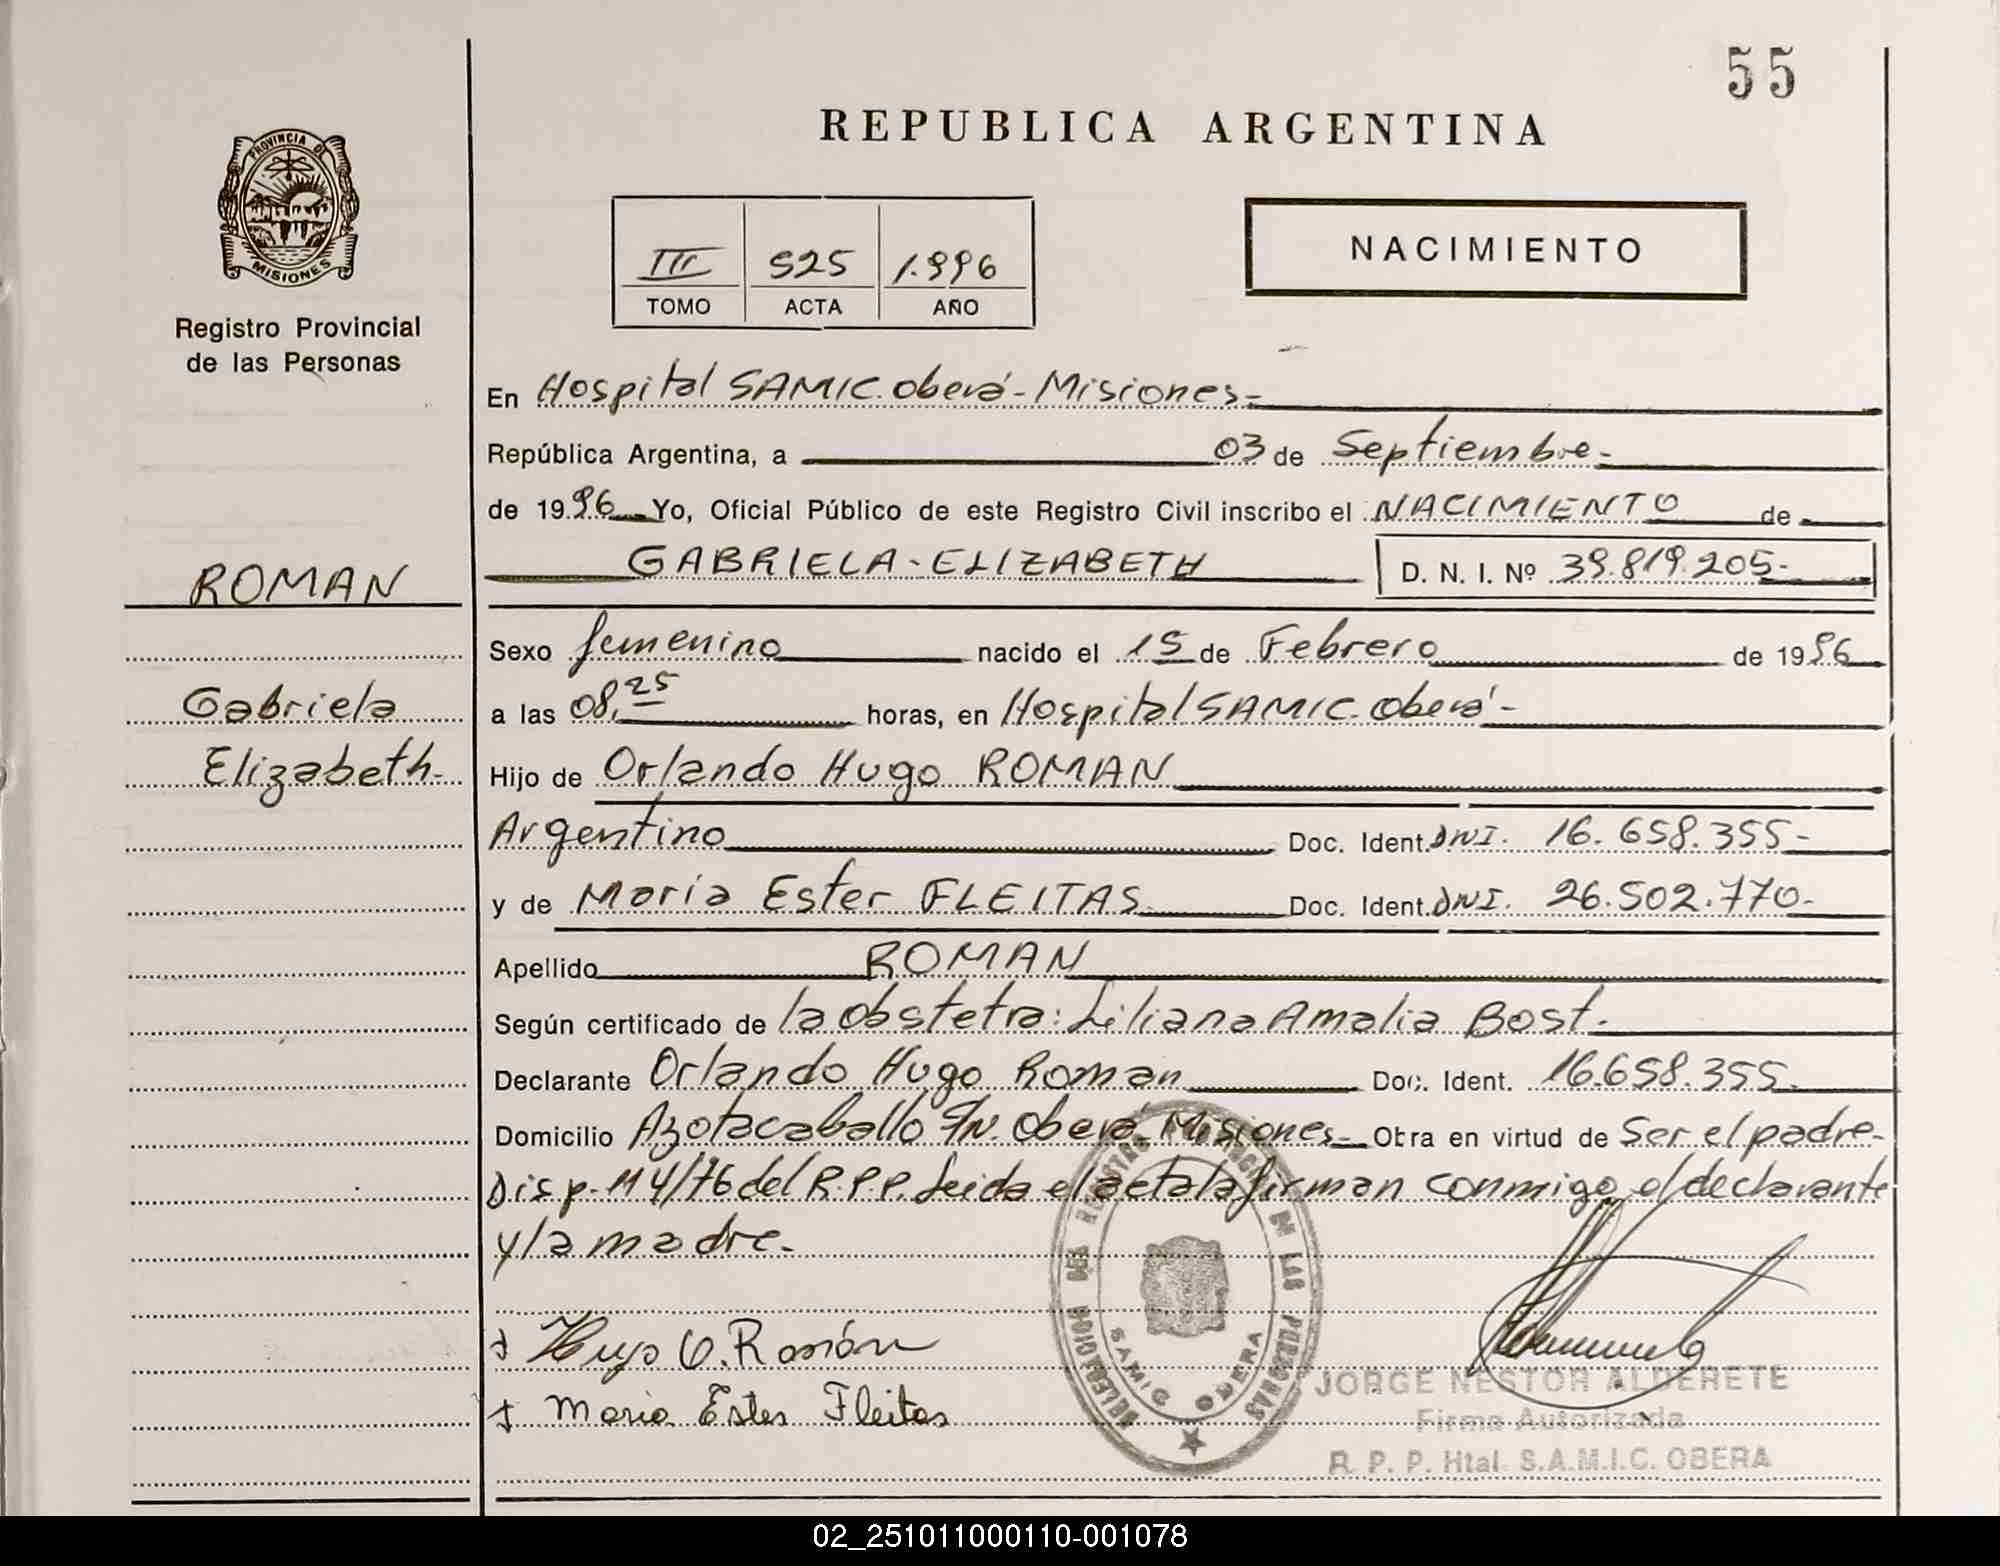 55
REPUBLICA ARGENTINA
PROVINCIA DE
MISIONES
Registro Provincial
de las Personas
III 525 1.996
TOMO ACTA AÑO
NACIMIENTO
En Hospital SAMIC. Oberá - Misiones -
República Argentina, a 03 de Septiembre -
de 1996 Yo, Oficial Público de este Registro Civil inscribo el NACIMIENTO de
ROMAN
GABRIELA - ELIZABETH D. N. I. Nº 39.819.205-
Sexo femenino nacido el 15 de Febrero de 1996
Gabriela
a las 08,25 horas, en Hospital SAMIC. Oberá -
Elizabeth -
Hijo de Orlando Hugo ROMAN
Argentino Doc. Ident. DNI. 16.658.355-
y de Maria Ester FLEITAS Doc. Ident. DNI. 26.502.770-
Apellido ROMAN
Según certificado de la obstetra: Liliana Amalia Bost.
Declarante Orlando Hugo Roman Doc. Ident. 16.658.355-
Domicilio Azotacaballo S/N. Oberá - Misiones - Obra en virtud de Ser el padre -
Disp. 114/76 del R.P.P. Leida el acta la firman conmigo el declarante
y la madre -
Hugo O. Román
Maria Ester Fleitas
DELEGACION DEL REGISTRO PROVINCIAL DE LAS PERSONAS
SAMIC OBERA
JORGE NESTOR ALDERETE
Firma Autorizada
R. P. P. Htal. S.A.M.I.C. OBERA
02_251011000110-001078